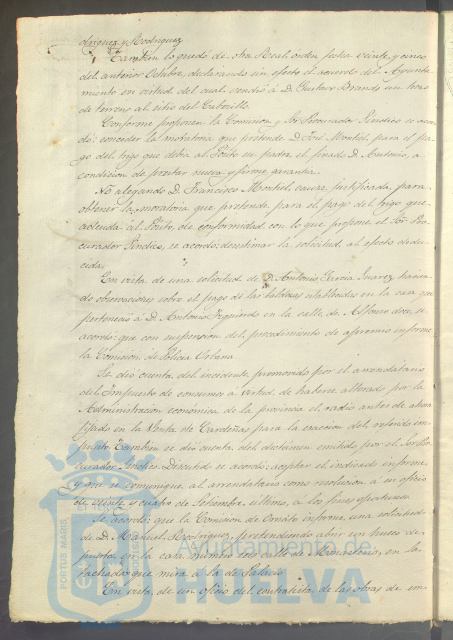 driguez y Rodriguez
Tambien lo quedó de otra Real orden fecha veinte y cinco
del anterior Octubre, declarando sin efecto el acuerdo del Ayunta-
miento en virtud del cual vendió á D. Gustavo Brandt un trozo
de terreno al sitio del
Conforme proponen la Comision y Sor Procurador Sindico se acor-
dó: conceder la moratoria que pretende D. José Montiel, para el pa-
go del trigo que debia al Pósito su padre, el finado D. Antonio, a
condicion de prestar nueva y firme garantia.
No alegando D. Francisco Montiel causa justificada para
obtener la moratoria que pretende para el pago del trigo que
adeuda al Pósito, de conformidad con lo que propone el Sor Pro-
curador Sindico, se acordó: desestimar la solicitud al efecto dedu-
cida.
En vista de una solicitud de D. Antonio Garcia Suarez hacien-
do observaciones sobre el pago de las baldosas establecidas en la casa que
perteneció á D. Antonio Izquierdo en la calle de Alfonso doce, se
acordó: que con suspension del procedimiento de apremio informe
la Comision de Policia Urbana.
Se dió cuenta del incidente promovido por el arrendatario
del Impuesto de consumos á virtud de haberse alterado por la
Administracion económica de la provincia el radio antes de ahora
fijado en la Venta de Cardeñas para la exaccion del referido im-
puesto. Tambien se dió cuenta del dictámen emitido por el Sor Pro-
curador Sindico. Discutido se acordó: aceptar el indicado informe,
y que se comunique al arrendatario como resolucion á su oficio
de veinte y cuatro de Setiembre último, a los fines oportunos.
Se acordó: que la Comision de Ornato informe una solicitud
de D. Manuel Rodriguez, pretendiendo abrir un hueco de
puerta en la casa número tres calle de Monasterio, en la
fachada que mira á la de Palacio.
En vista de un oficio del contratista de las obras de em-
PORTUS MARIS
Ayuntamiento
HUELVA